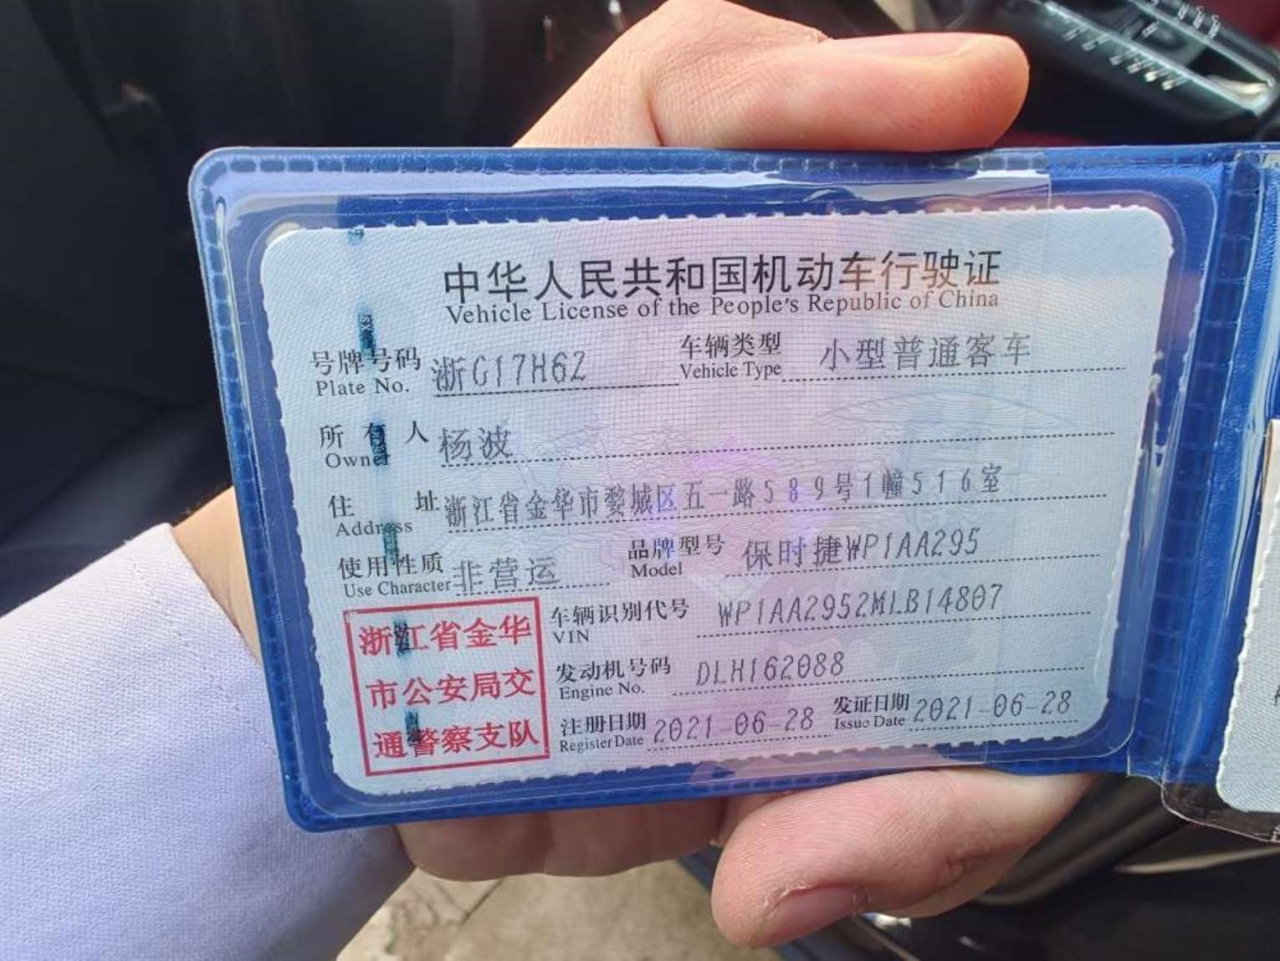 中华人民共和国机动车行驶证
Vehicle License of the People's Republic of China
号牌号码 浙G17H62 车辆类型 小型普通客车
Plate No. Vehicle Type
所有人 杨波
Owner
住址 浙江省金华市婺城区五一路589号1幢516室
Address
使用性质 非营运 品牌型号 保时捷WP1AA295
Use Character Model
车辆识别代号 WP1AA2952MLB14807
VIN
发动机号码 DLH162088
Engine No.
注册日期 2021-06-28 发证日期 2021-06-28
Register Date Issue Date
浙江省金华
市公安局交
通警察支队